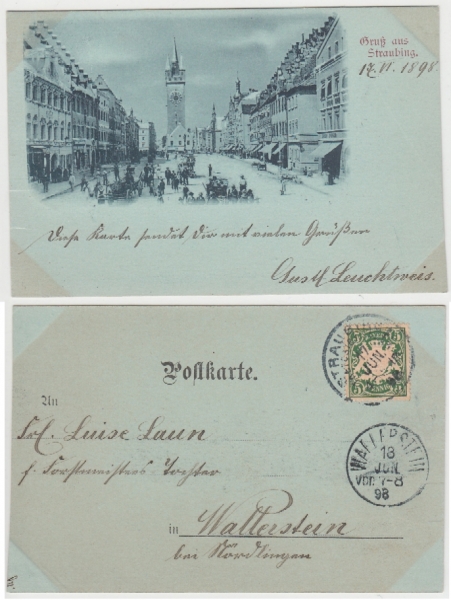 Gruß aus
Straubing.
17. VI. 1898.
Diese Karte sendet Dir mit vielen Grüßen
Leuchtweis.
STRAUBING
JUN
Postkarte.
An
Frl. Luise Laun
f. Forstmeisters Tochter
WALLERSTEIN
18
JUN
VOR. 7-8
98
in Wallerstein
bei Nördlingen